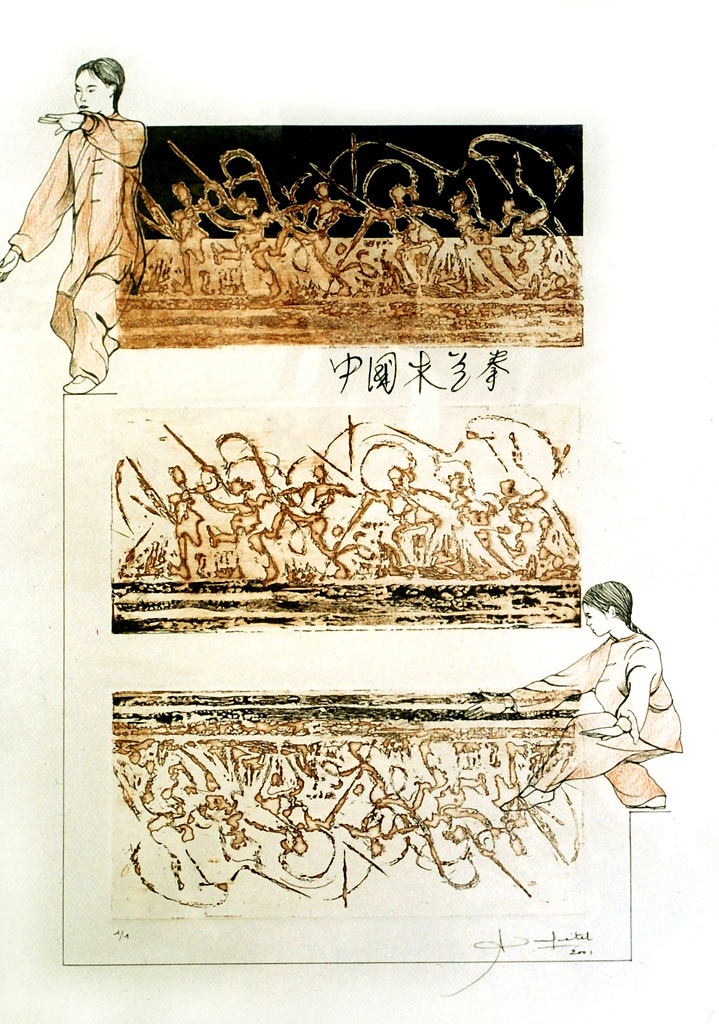 中國木兰拳
1/1
2001